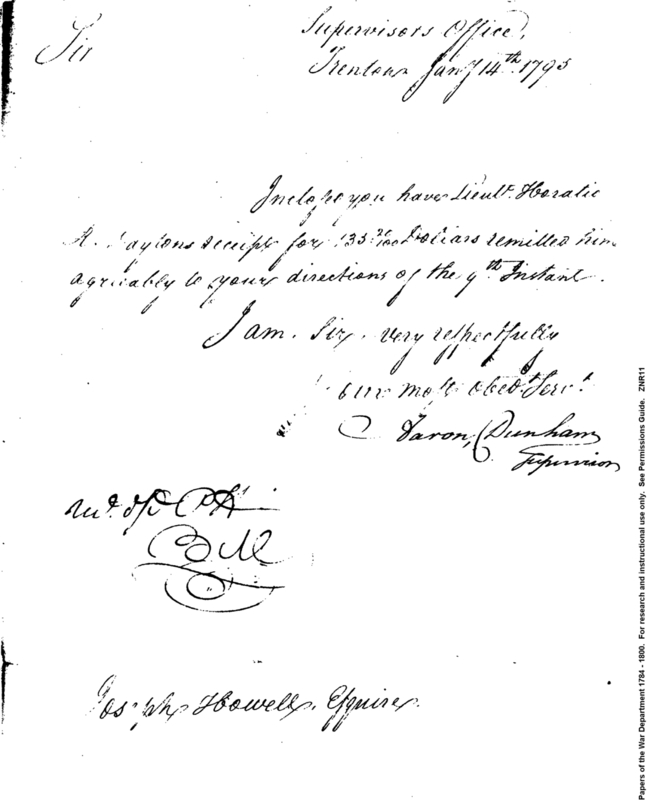 Supervisors Office,
Sir Trenton Jany 14th. 1795
Inclosed you have Lieut. Horatio
R. Daytons receipt for 135 Dollars remitted him
agreeably to yours directions of the 9th. Instant.
I am, Sir, very respectfully
your most obedt. Servt.
Aaron Dunham
Supervisor
Joseph Howell, Esquire
Papers of the War Department 1784 - 1800. For research and instructional use only. See Permissions Guide. ZNR11